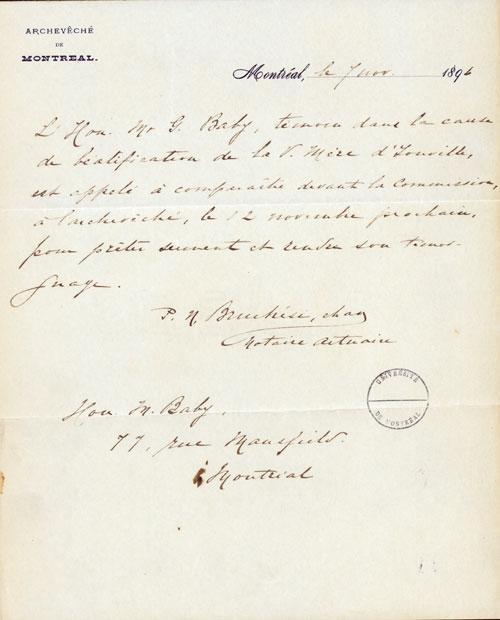 ARCHEVÊCHÉ
DE
MONTREAL.
Montréal, le 7 nov. 1896
L'Hon. Mr G. Baby, temoin dans la cause
de béatification de la V. Mère d'Youville,
est appelé à comparaître devant la Commission,
à l'archevêché, le 12 novembre prochain,
pour prêter serment et rendre son témoi-
gnage.
P. N. Bruchési, chan
Notaire Actuaire
UNIVERSITÉ
DE MONTRÉAL
Hon. M. Baby,
77, rue Mansfield.
Montréal